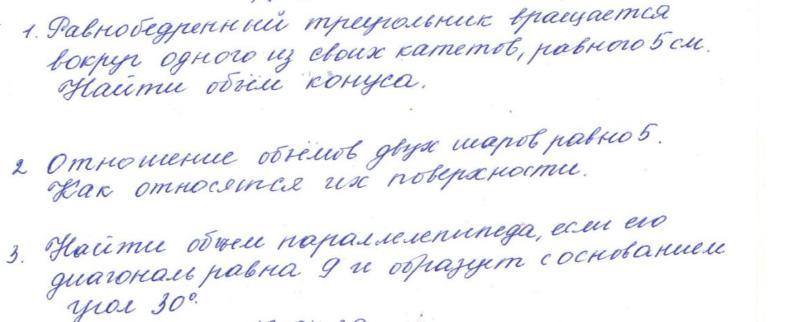 1. Равнобедренный треугольник вращается
вокруг одного из своих катетов, равного 5 см.
Найти объём конуса.
2 Отношение объёмов двух шаров равно 5.
Как относятся их поверхности.
3. Найти объем параллелепипеда, если его
диагональ равна 9 и образует с основанием
угол 30°.